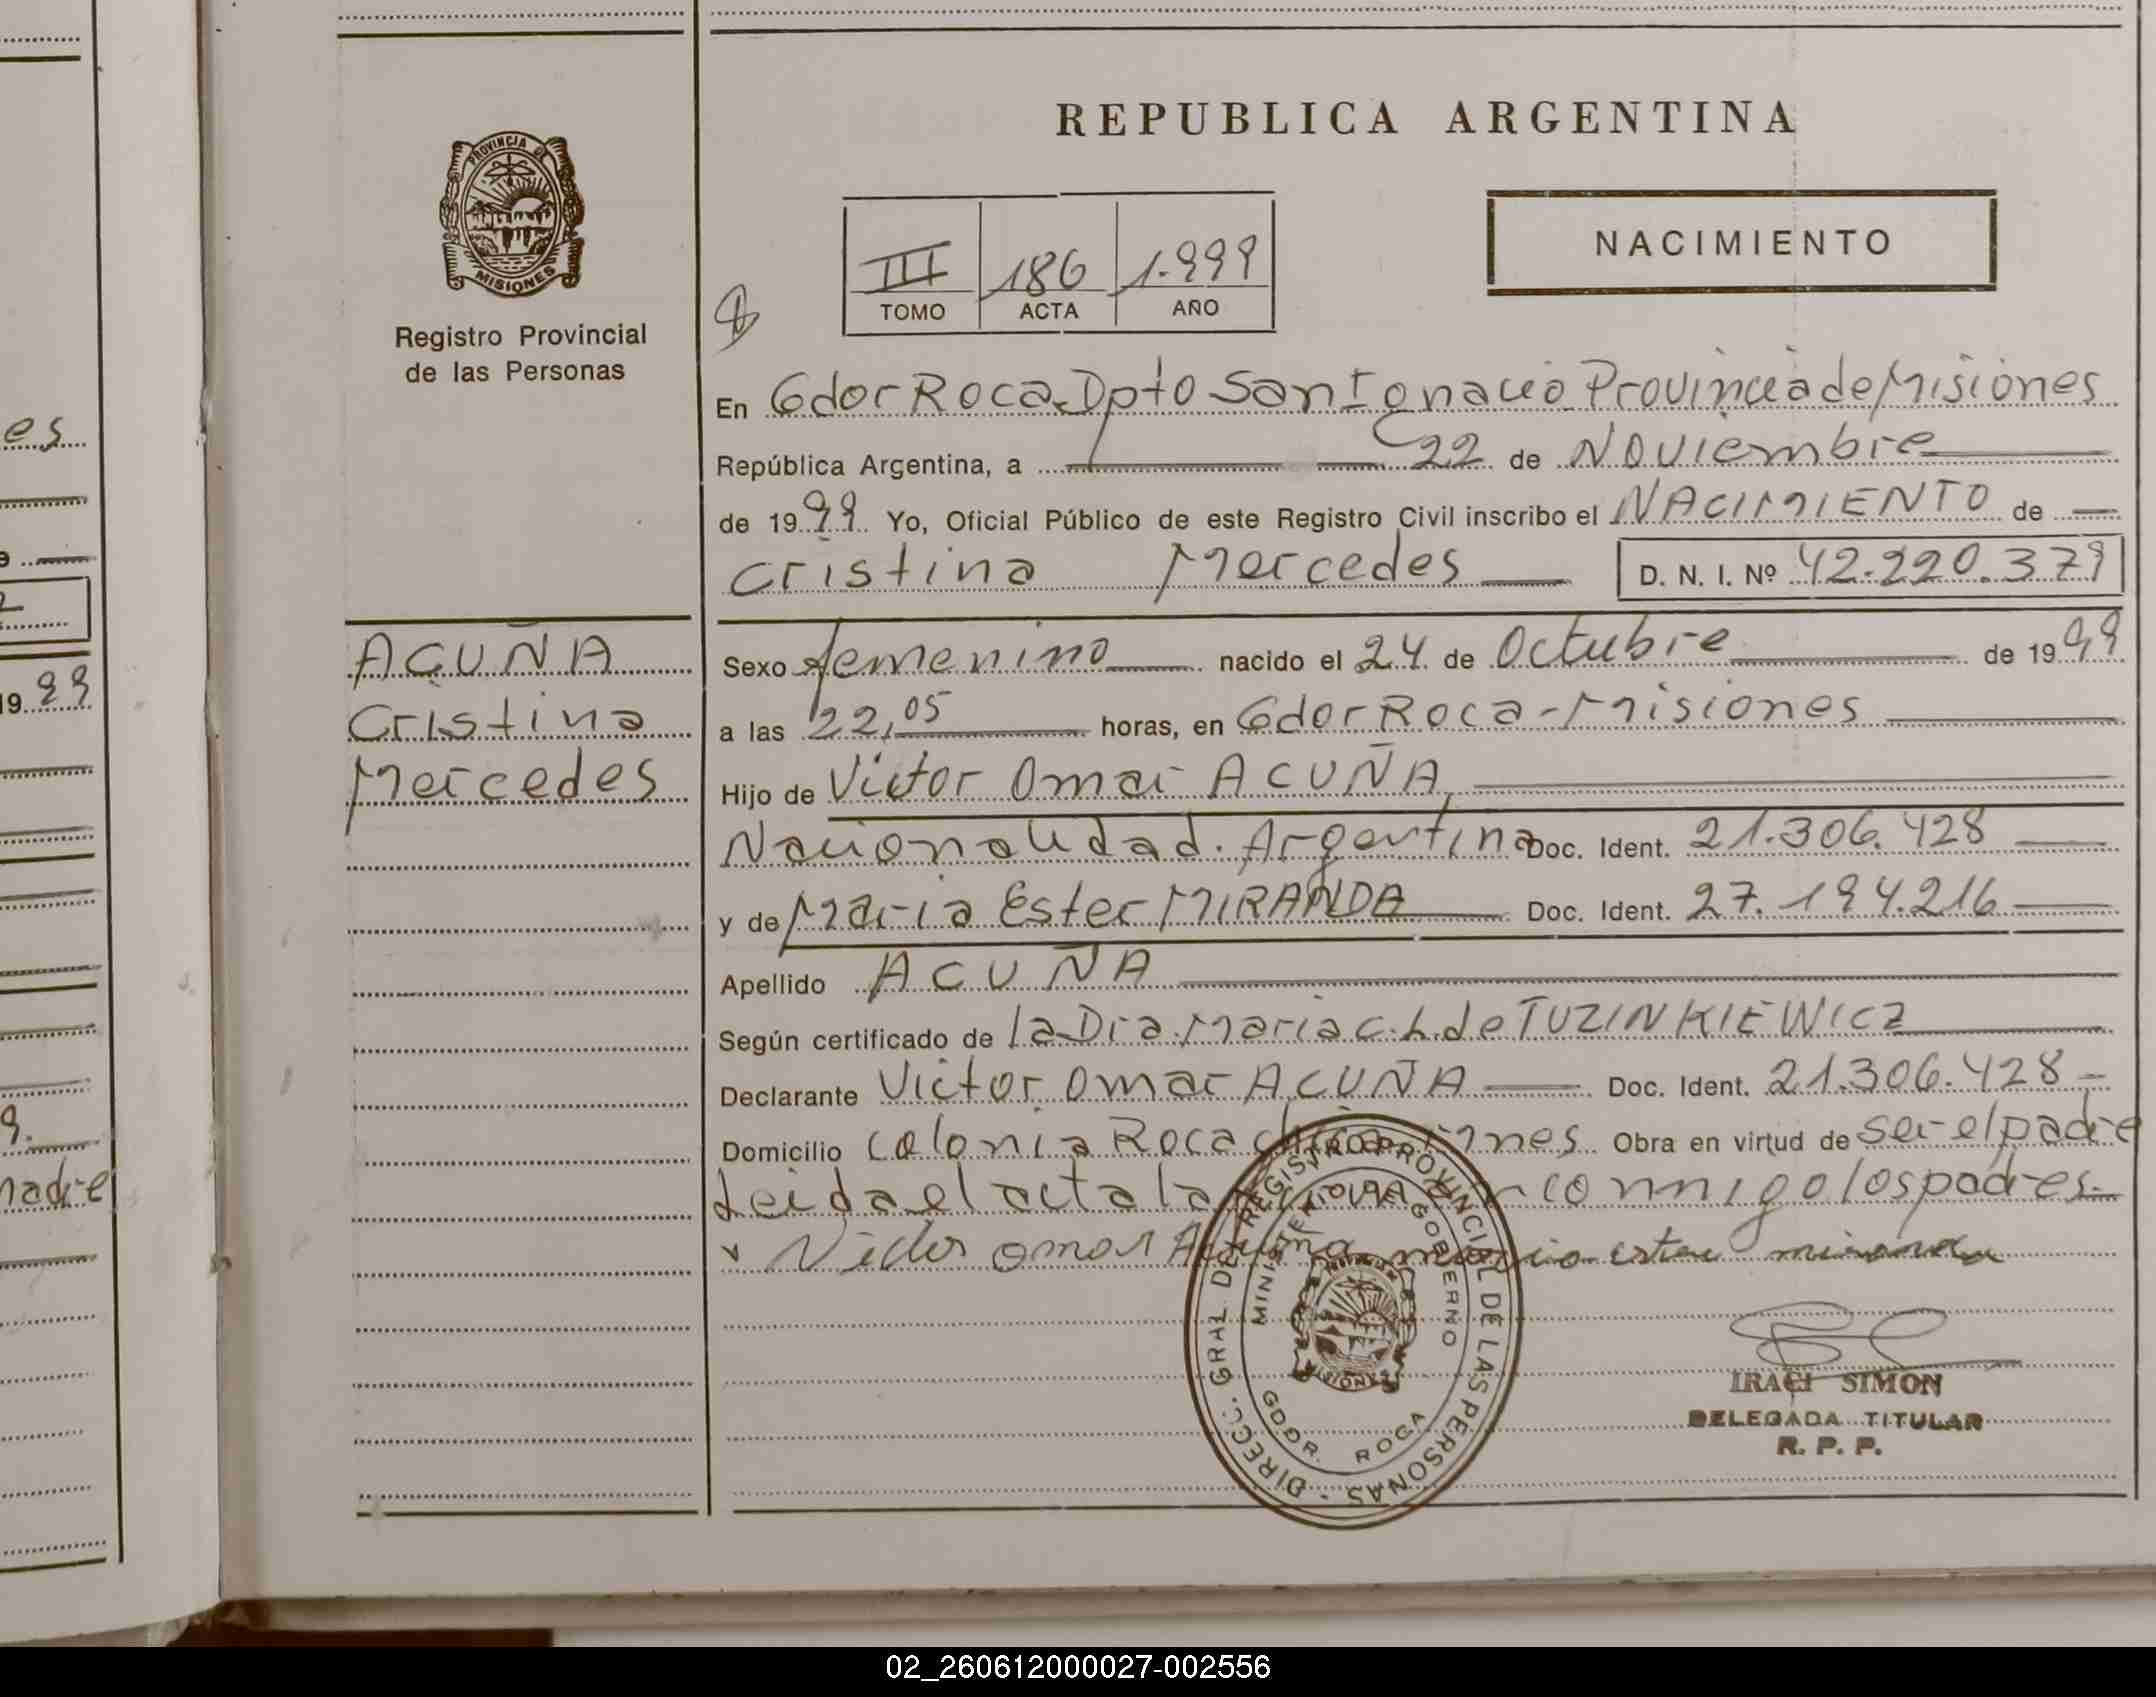 REPUBLICA ARGENTINA
PROVINCIA DE
MISIONES
Registro Provincial
de las Personas
III 186 1.999
TOMO ACTA AÑO
NACIMIENTO
En Gdor Roca Dpto San Ignacio Provincia de Misiones
República Argentina, a 22 de Noviembre
de 1999 Yo, Oficial Público de este Registro Civil inscribo el NACIMIENTO de
Cristina Mercedes D. N. I. Nº 42.220.379
ACUÑA
Cristina
Mercedes
Sexo femenino nacido el 24 de Octubre de 1999
a las 22,05 horas, en Gdor Roca - Misiones
Hijo de Victor Omar ACUÑA
Nacionalidad. Argentina Doc. Ident. 21.306.428
y de Maria Ester MIRANDA Doc. Ident. 27.194.216
Apellido ACUÑA
Según certificado de la Dra. Maria C. L. de TUZINKIEWICZ
Declarante Victor Omar ACUÑA Doc. Ident. 21.306.428
Domicilio Colonia Roca Obra en virtud de ser el padre
Leida el acta la conmigo los padres
Victor Omar Acuña maria ester miranda
DIRECC. GRAL. DEL REGISTRO PROVINCIAL DE LAS PERSONAS
MINISTERIO DE GOBIERNO
MISIONES
GDOR. ROCA
IRACI SIMON
DELEGADA TITULAR
R. P. P.
es
1999
9.
madre
02_260612000027-002556